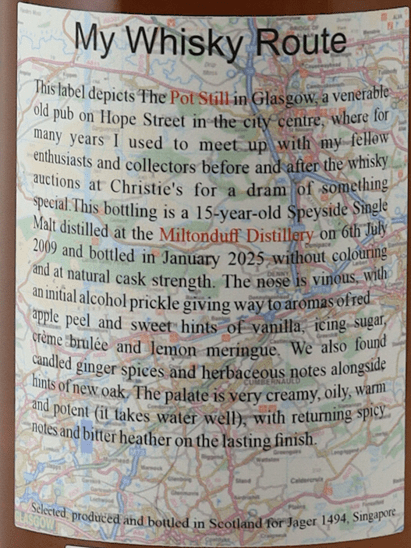 My Whisky Route
This label depicts The Pot Still in Glasgow, a venerable
old pub on Hope Street in the city centre, where for
many years I used to meet up with my fellow
enthusiasts and collectors before and after the whisky
auctions at Christie's for a dram of something
special.This bottling is a 15-year-old Speyside Single
Malt distilled at the Miltonduff Distillery on 6th July
2009 and bottled in January 2025 without colouring
and at natural cask strength. The nose is vinous, with
an initial alcohol prickle giving way to aromas of red
apple peel and sweet hints of vanilla, icing sugar,
crème brulée and lemon meringue. We also found
candled ginger spices and herbaceous notes alongside
hints of new oak. The palate is very creamy, oily, warm
and potent (it takes water well), with returning spicy
notes and bitter heather on the lasting finish.
CUMBERNAULD
GLASGOW
Selected, produced and bottled in Scotland for Jager 1494, Singapore